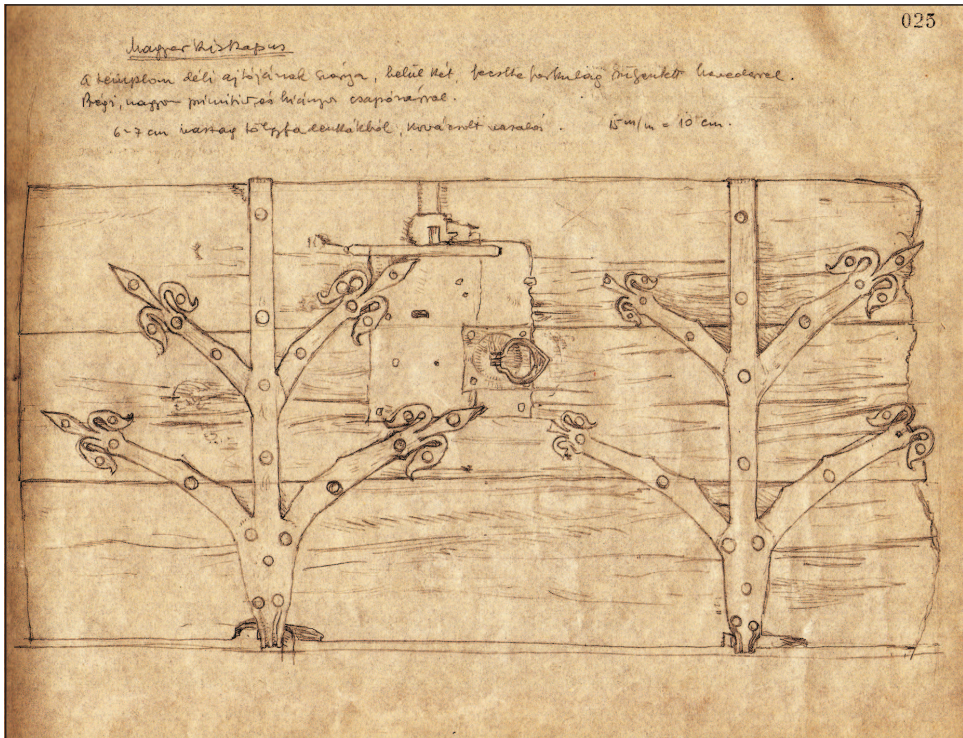 025
Magyar Kiskapus
A templom déli ajtójának szárnya, belül két, hevederrel.
Régi, nagyon primitiv és hiányos csapózárral.
6-7 cm vastag tölgyfa deszkákból, kovácsolt vasalás. 15 m/m = 10 cm.